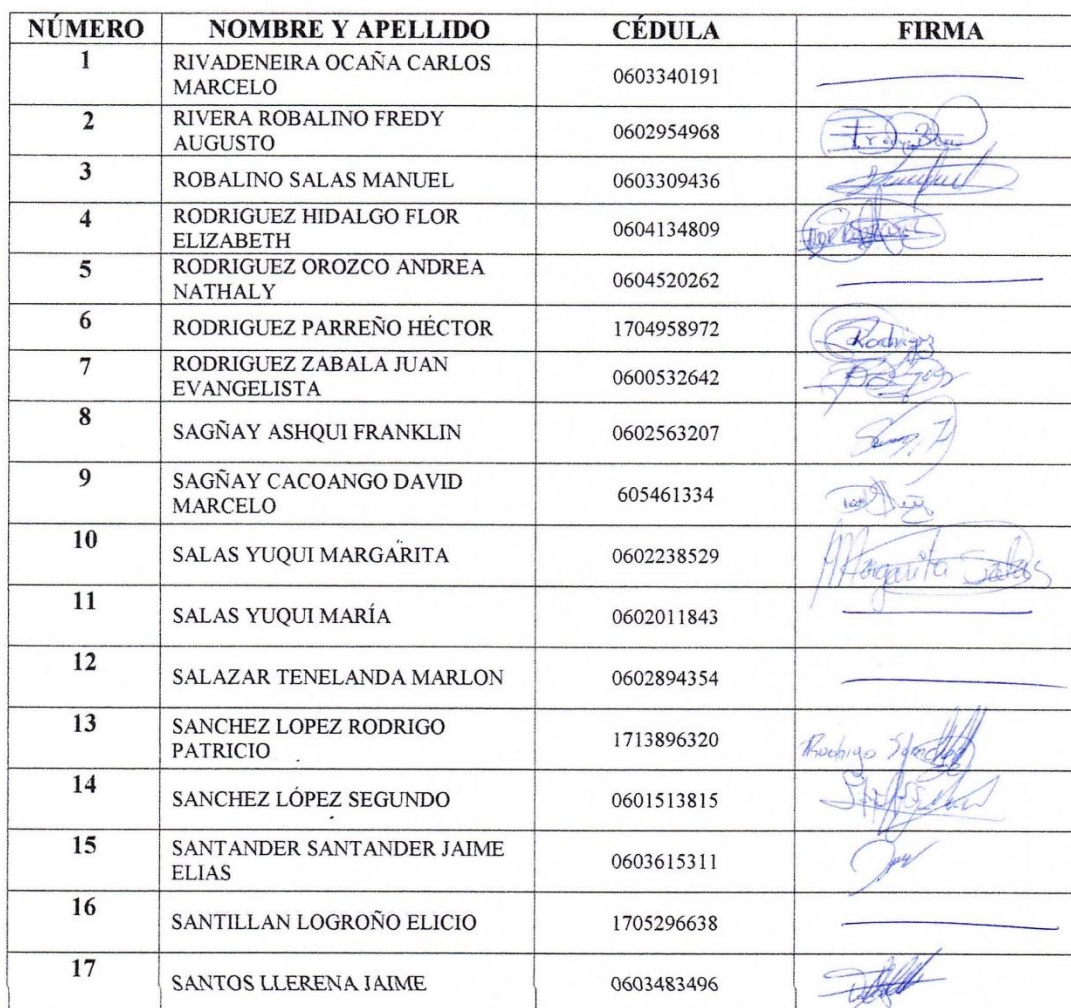 NÚMERO NOMBRE Y APELLIDO CÉDULA FIRMA
1 RIVADENEIRA OCAÑA CARLOS MARCELO 0603340191
2 RIVERA ROBALINO FREDY AUGUSTO 0602954968
3 ROBALINO SALAS MANUEL 0603309436
4 RODRIGUEZ HIDALGO FLOR ELIZABETH 0604134809
5 RODRIGUEZ OROZCO ANDREA NATHALY 0604520262
6 RODRIGUEZ PARREÑO HÉCTOR 1704958972 Rodriguez
7 RODRIGUEZ ZABALA JUAN EVANGELISTA 0600532642
8 SAGÑAY ASHQUI FRANKLIN 0602563207
9 SAGÑAY CACOANGO DAVID MARCELO 605461334
10 SALAS YUQUI MARGARITA 0602238529 Margarita Salas
11 SALAS YUQUI MARÍA 0602011843
12 SALAZAR TENELANDA MARLON 0602894354
13 SANCHEZ LOPEZ RODRIGO PATRICIO 1713896320 Rodrigo Sanchez
14 SANCHEZ LÓPEZ SEGUNDO 0601513815
15 SANTANDER SANTANDER JAIME ELIAS 0603615311
16 SANTILLAN LOGROÑO ELICIO 1705296638
17 SANTOS LLERENA JAIME 0603483496